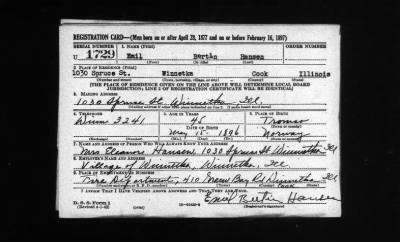 REGISTRATION CARD—(Men born on or after April 28, 1877 and on or before February 16, 1897)
SERIAL NUMBER 1. NAME (Print) ORDER NUMBER
U 1729 Emil Bertin Hansen
(First) (Middle) (Last)
2. PLACE OF RESIDENCE (Print)
1030 Spruce St. Winnetka Cook Illinois
(Number and street) (Town, township, village, or city) (County) (State)
[THE PLACE OF RESIDENCE GIVEN ON THE LINE ABOVE WILL DETERMINE LOCAL BOARD
JURISDICTION; LINE 2 OF REGISTRATION CERTIFICATE WILL BE IDENTICAL]
3. MAILING ADDRESS
1030 Spruce St. Winnetka, Ill.
[Mailing address if other than place indicated on line 2. If same insert word same]
4. TELEPHONE 5. AGE IN YEARS 6. PLACE OF BIRTH
Winn 3241 45 Tromso
DATE OF BIRTH (Town or county)
May 15 - 1896 Norway
(Exchange) (Number) (Mo.) (Day) (Yr.) (State or country)
7. NAME AND ADDRESS OF PERSON WHO WILL ALWAYS KNOW YOUR ADDRESS
Mrs Eleanor Hansen 1030 Spruce St Winnetka Ill
8. EMPLOYER'S NAME AND ADDRESS
Village of Winnetka, Winnetka, Ill
9. PLACE OF EMPLOYMENT OR BUSINESS
Fire Department, 410 Green Bay Rd Winnetka Cook Ill
(Number and street or R. F. D. number) (Town) (County) (State)
I AFFIRM THAT I HAVE VERIFIED ABOVE ANSWERS AND THAT THEY ARE TRUE.
D. S. S. Form 1
(Revised 4-1-42) (over) Emil Bertin Hansen